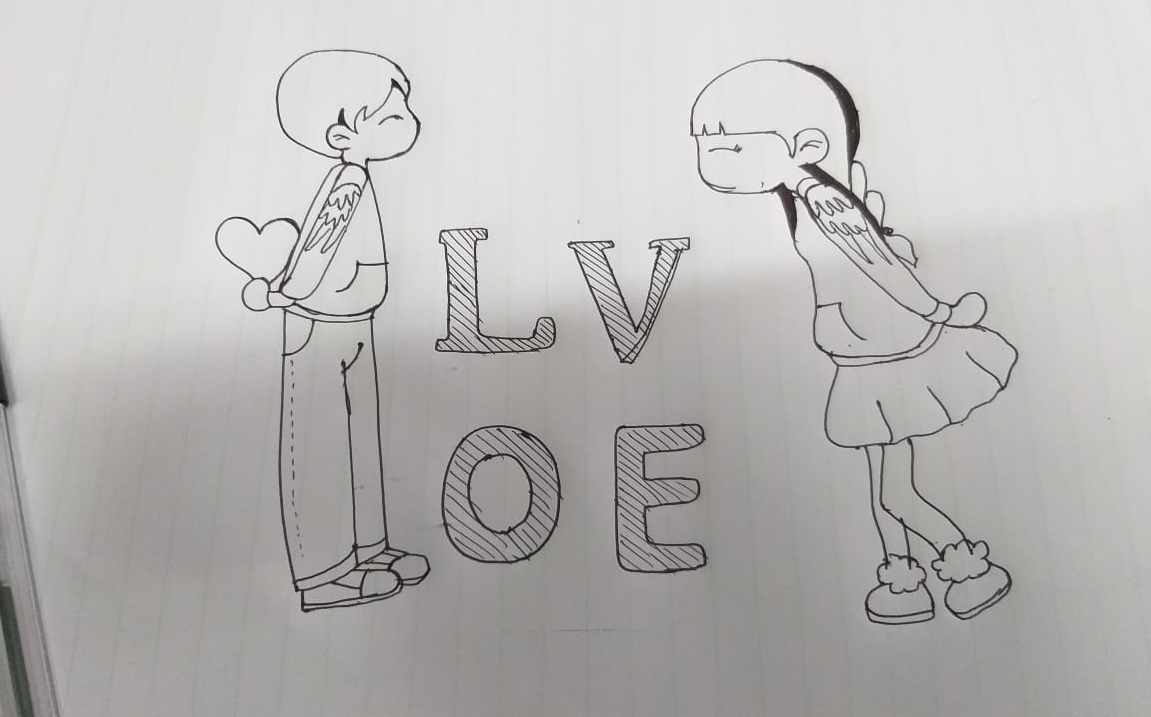 LV
OE